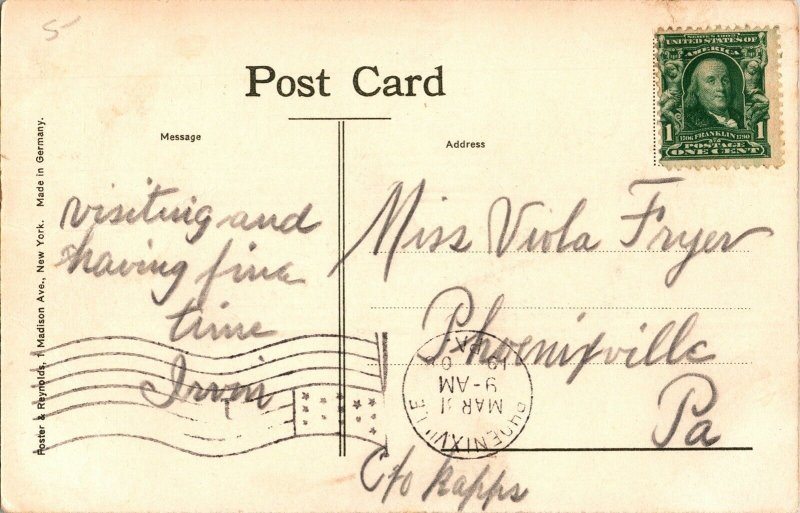 5
Post Card
Message
Address
Foster & Reynolds, 1 Madison Ave., New York. Made in Germany.
SERIES 1902
UNITED STATES OF
AMERICA
1706 FRANKLIN 1790
1 1
POSTAGE
ONE CENT
visiting and
having fine
time
Miss Viola Fryer
Phoenixville
Pa
C/o Rapps
PHOENIXVILLE
MAR
9-AM
PA.